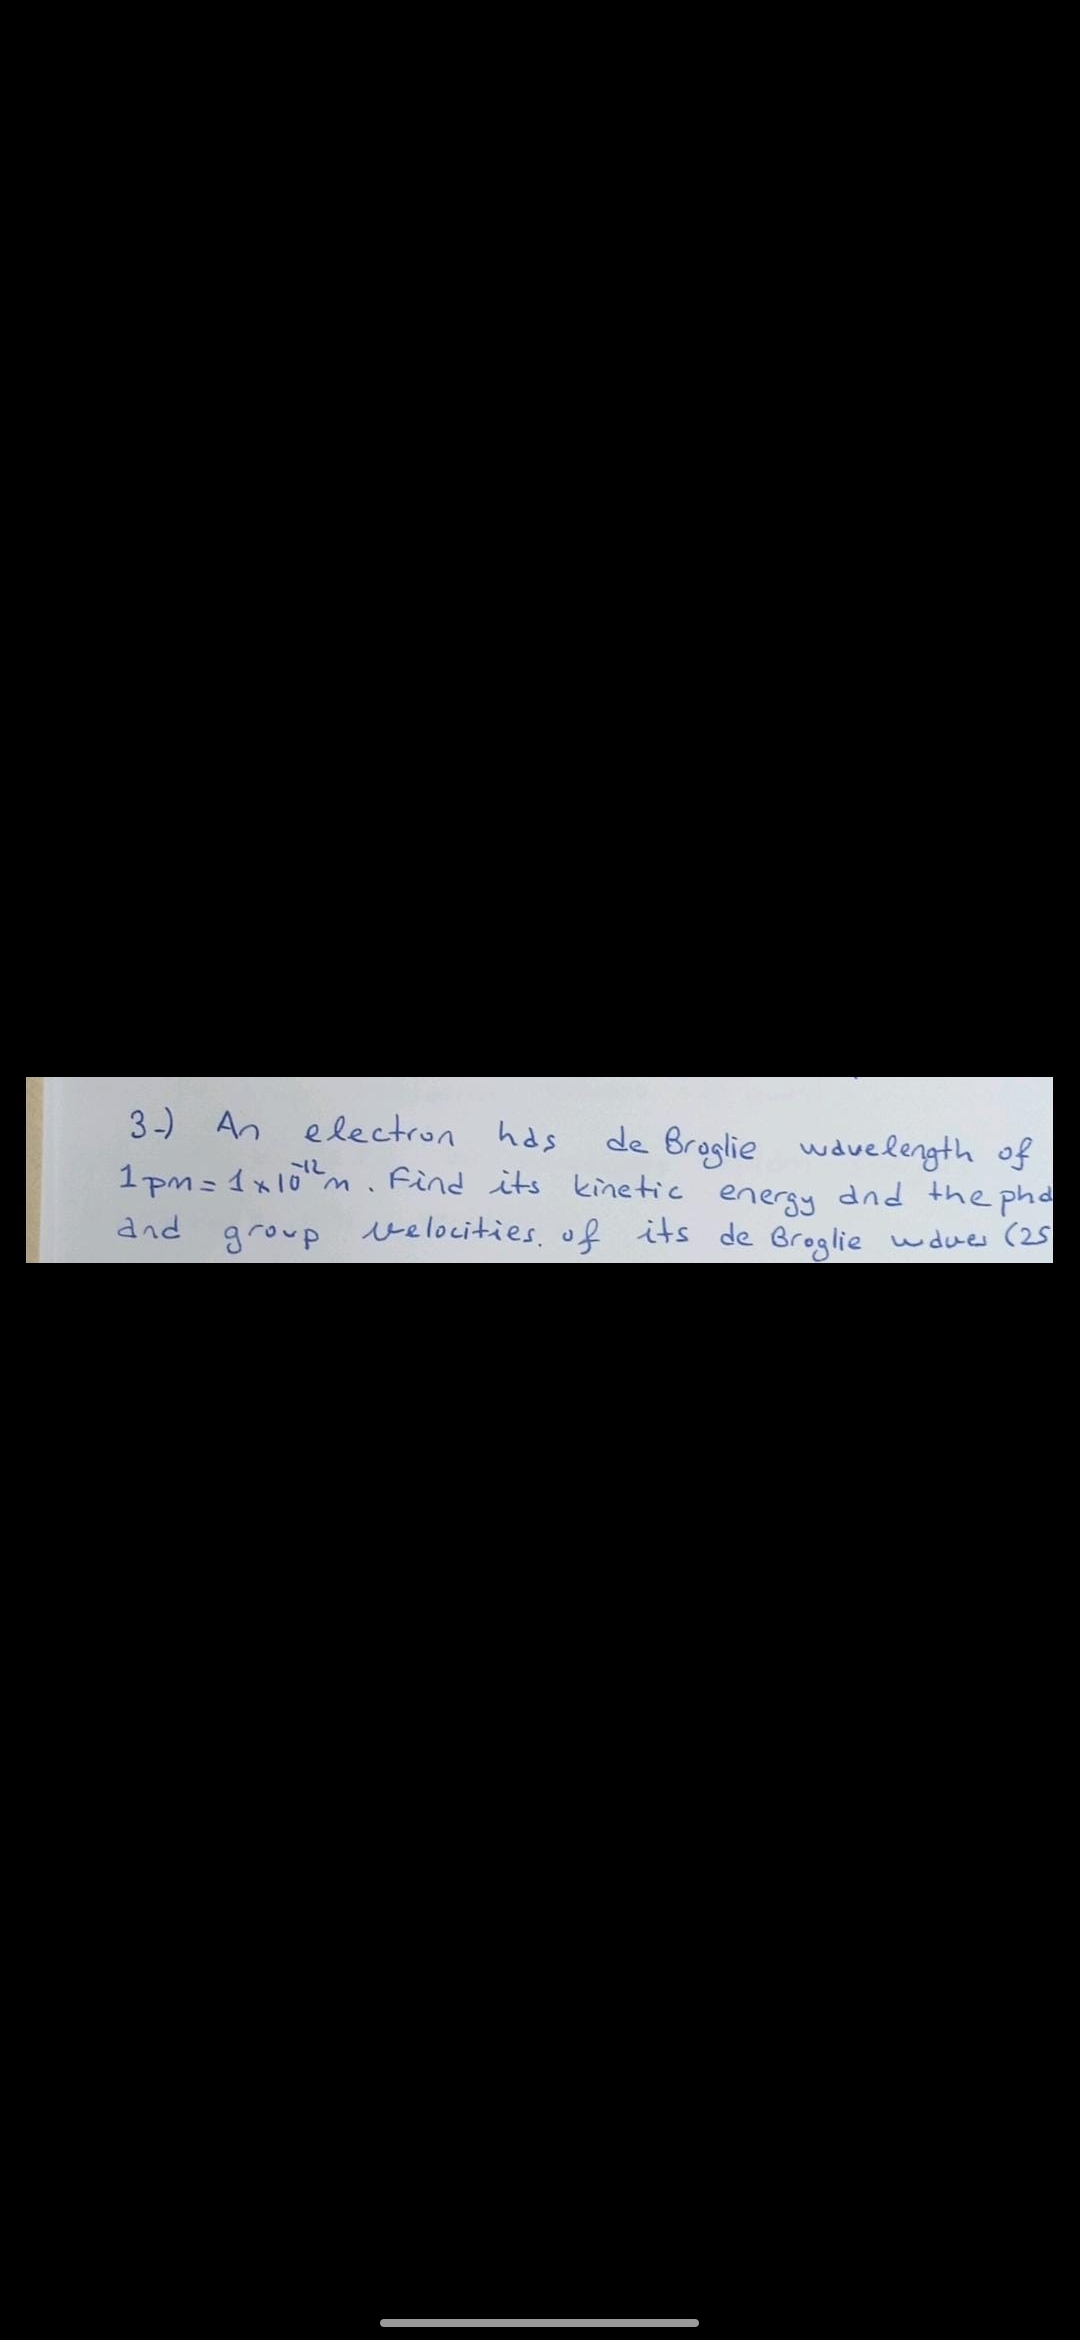 3-) An electron has de Broglie wavelength of
1 pm = 1 x 10⁻¹² m. Find its kinetic energy and the pha
and group velocities. of its de Broglie waves (25